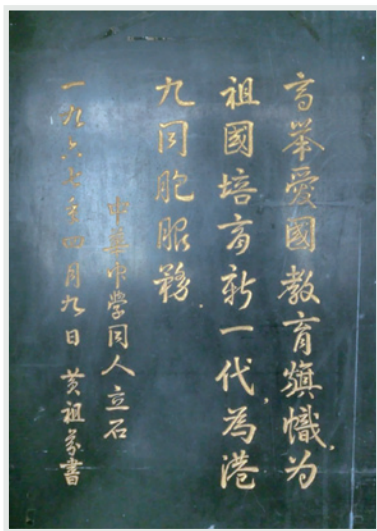 高举爱國教育旗幟,为
祖國培育新一代,為港
九同胞服務.
中華中学同人立石
一九六七年四月九日 黄祖芬書